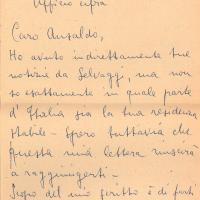 Ufficio cifra
Caro Ansaldo,
Ho avuto indirettamente tue
notizie da Selvaggi, ma non
so esattamente in quale parte
d'Italia sia la tua residenza
stabile - Spero tuttavia che
questa mia lettera riuscirà
a raggiungerti -
Scopo del mio scritto è di farti